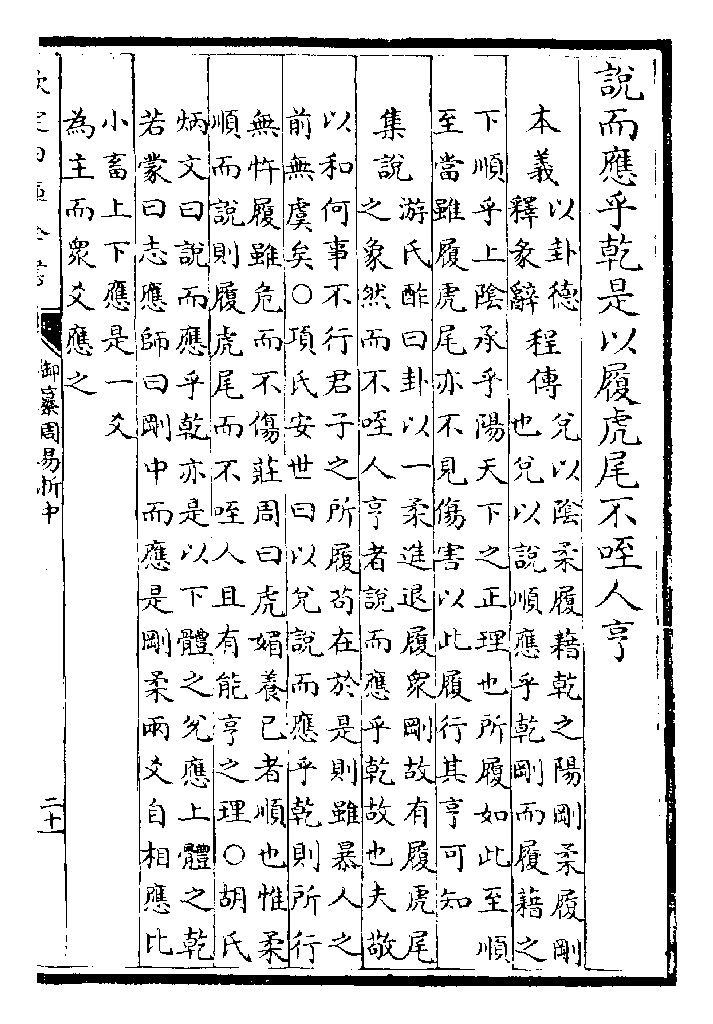 說而應乎乾是以履虎尾不咥人亨
本義
以卦德
釋彖辭
程傳
兌以陰柔履藉乾之陽剛柔履剛
也兌以說順應乎乾剛而履藉之
下順乎上陰承乎陽天下之正理也所履如此至順
至當雖履虎尾亦不見傷害以此履行其亨可知
集說
游氏酢曰卦以一柔進退履衆剛故有履虎尾
之象然而不咥人亨者說而應乎乾故也夫敬
以和何事不行君子之所履苟在於是則雖暴人之
前無虞矣○項氏安世曰以兌說而應乎乾則所行
無忤履雖危而不傷莊周曰虎媚養已者順也惟柔
順而說則履虎尾而不咥人且有能亨之理○胡氏
炳文曰說而應乎乾亦是以下體之兌應上體之乾
若蒙曰志應師曰剛中而應是剛柔兩爻自相應比
小畜上下應是一爻
為主而衆爻應之
欽定四庫全書
御纂周易折中
二十一